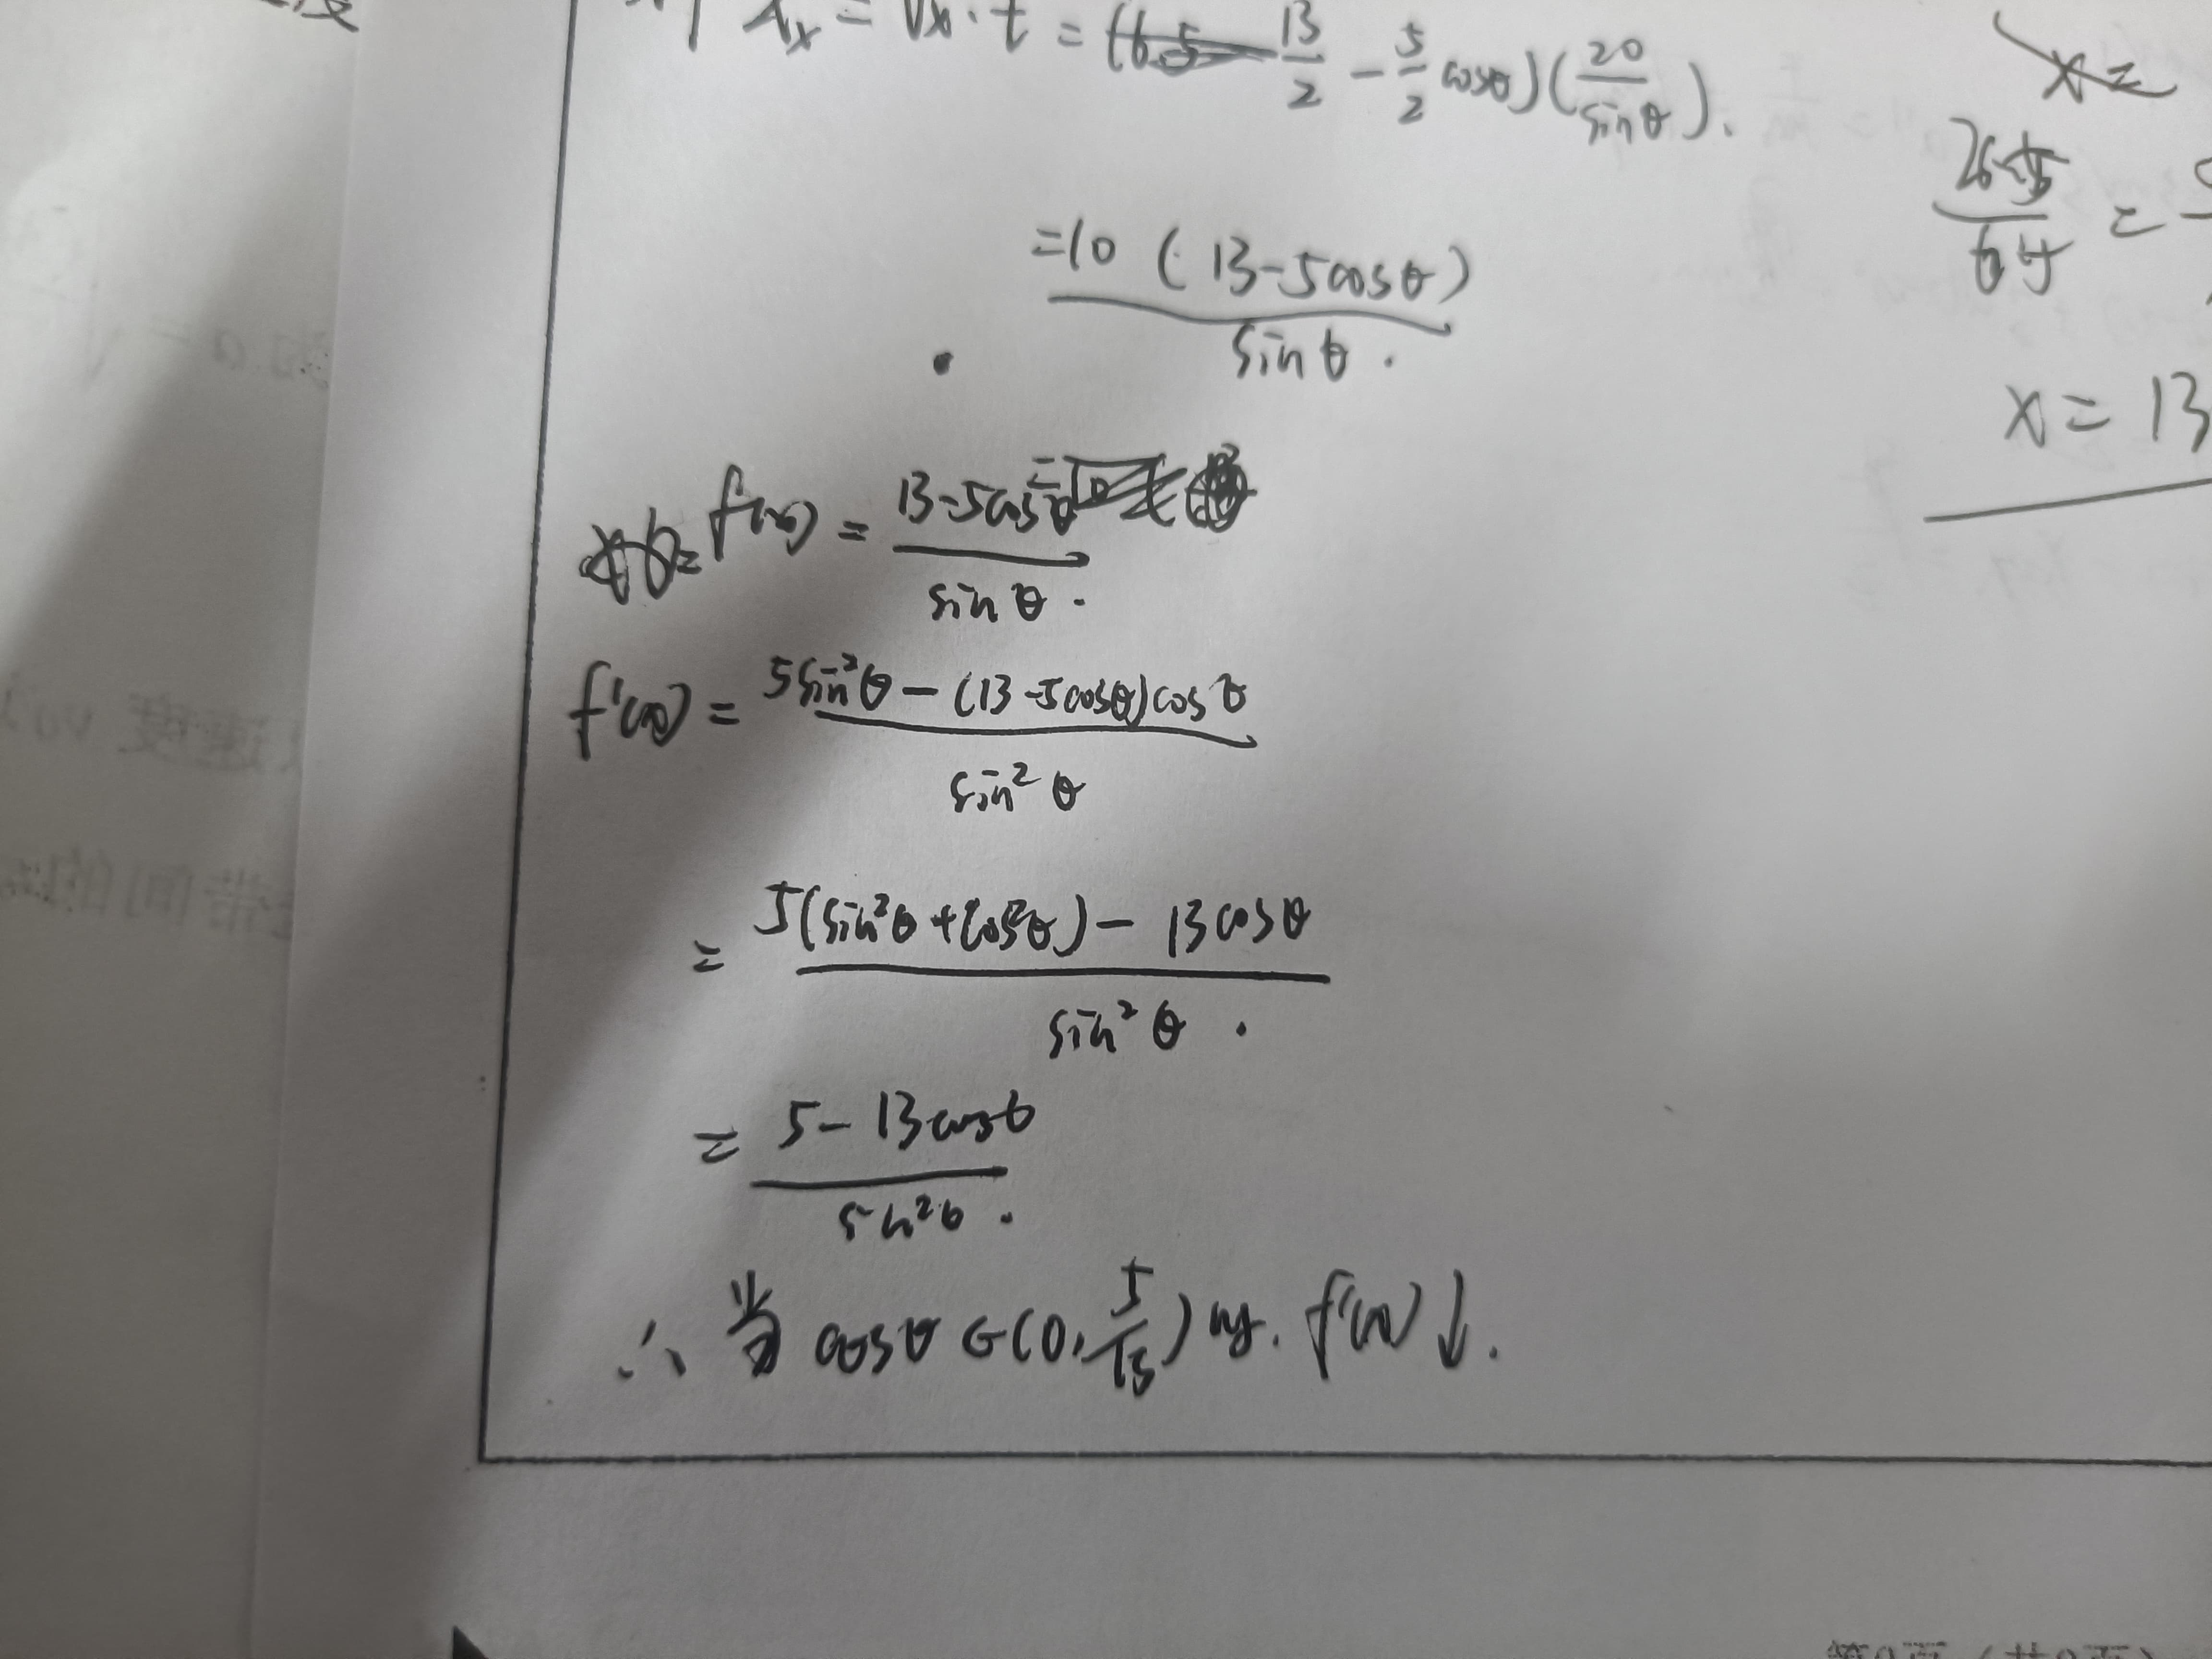 = Vx·t = ( 13/2 − 5/2 cosθ)(20/sinθ).
x=
= 10 (13−5cosθ) / sinθ.
x = 13
f(x) = 13−5cosθ / sinθ.
f'(x) = 5sin²θ − (13−5cosθ)cosθ / sin²θ
= 5(sin²θ+cos²θ) − 13cosθ / sin²θ.
= 5−13cosθ / sin²θ.
∴ 当 cosθ∈(0, 5/13) 时. f'(x)↓.